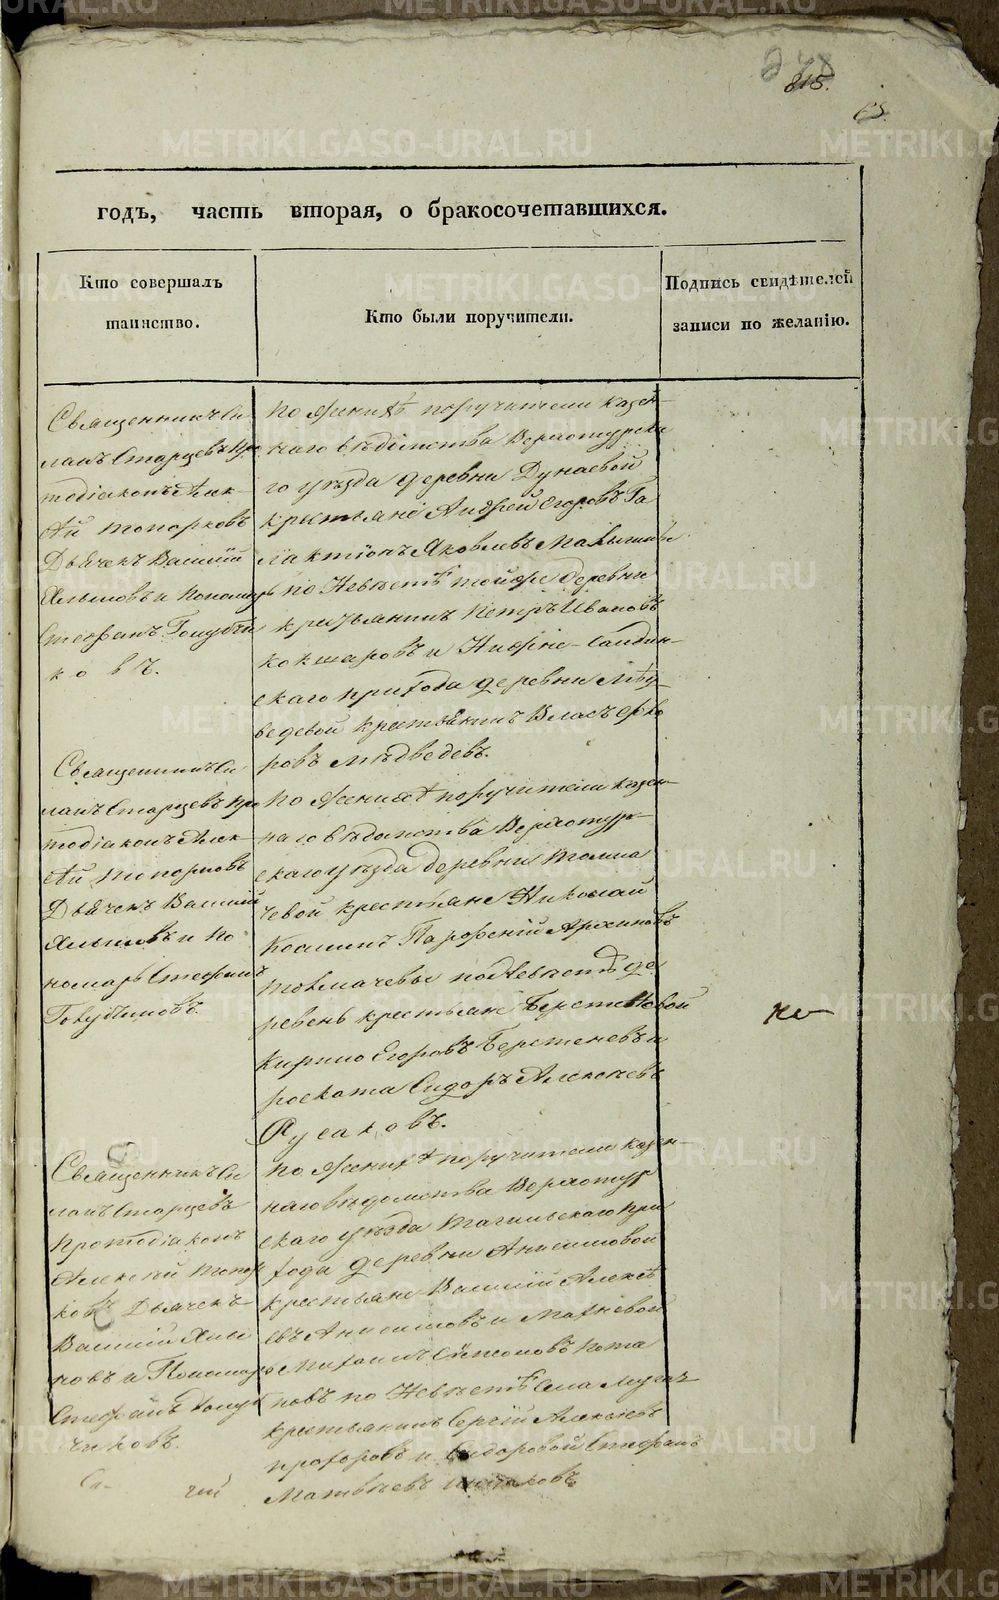 815.
годъ, часть вторая, о бракосочетавшихся.
Кто совершалъ
таинство.
Кто были поручители.
Подпись свидѣтелей
записи по желанію.
Священникъ Си
ланъ Старцевъ Про
тодіаконъ Алек-
ѣй Топорковъ
Дьячекъ Василій
Хлыновъ и Пономарь
Стефанъ Голубчи
ковъ.
По женихѣ поручители казен-
наго вѣдомства Верхотурска
го уѣзда деревни Дунаевой
крестьяне Андрей Егоровъ Га
лактіонъ Яковлевъ
по Невѣстѣ тойже деревни
крестьянинъ Петръ Ивановъ
Кокшаровъ и Нижне-Салдин-
скаго прихода деревни Медв
ведевой крестьянинъ Власъ Фео
ровъ Медведевъ.
Священникъ Си
ланъ Старцевъ Про
тодіаконъ Алек-
ѣй Топорковъ
Дьячекъ Василій
Хлыновъ и По
номарь Стефанъ
Голубчиковъ.
По женихѣ поручители казен-
наго вѣдомства Верхотур-
скаго уѣзда деревни Толма
чевой крестьяне Николай
Парфеній Архиповъ
Толмачевы по Невѣстѣ де
ревень крестьяне Берстеневой
Кирило Егоровъ Берстеневъ и
Сидоръ Алексѣевъ
Русаковъ.
Священникъ Си
ланъ Старцевъ
Протодіаконъ
Алексѣй Топор
ковъ Дьячекъ
Василій Хлы
новъ и Пономарь
Стефанъ Голуб
чиковъ.
По женихѣ поручители казен-
наго вѣдомства Верхотур
скаго уѣзда Тагильскаго при
хода деревни Анисимовой
крестьяне Василій Алексѣ
евъ Анисимовъ и Махневой
Пота
повъ по Невѣстѣ села
крестьянинъ Сергій Алексѣевъ
Прохоровъ и Сидоровой Стефанъ
Матвѣевъ
METRIKI.GASO-URAL.RU